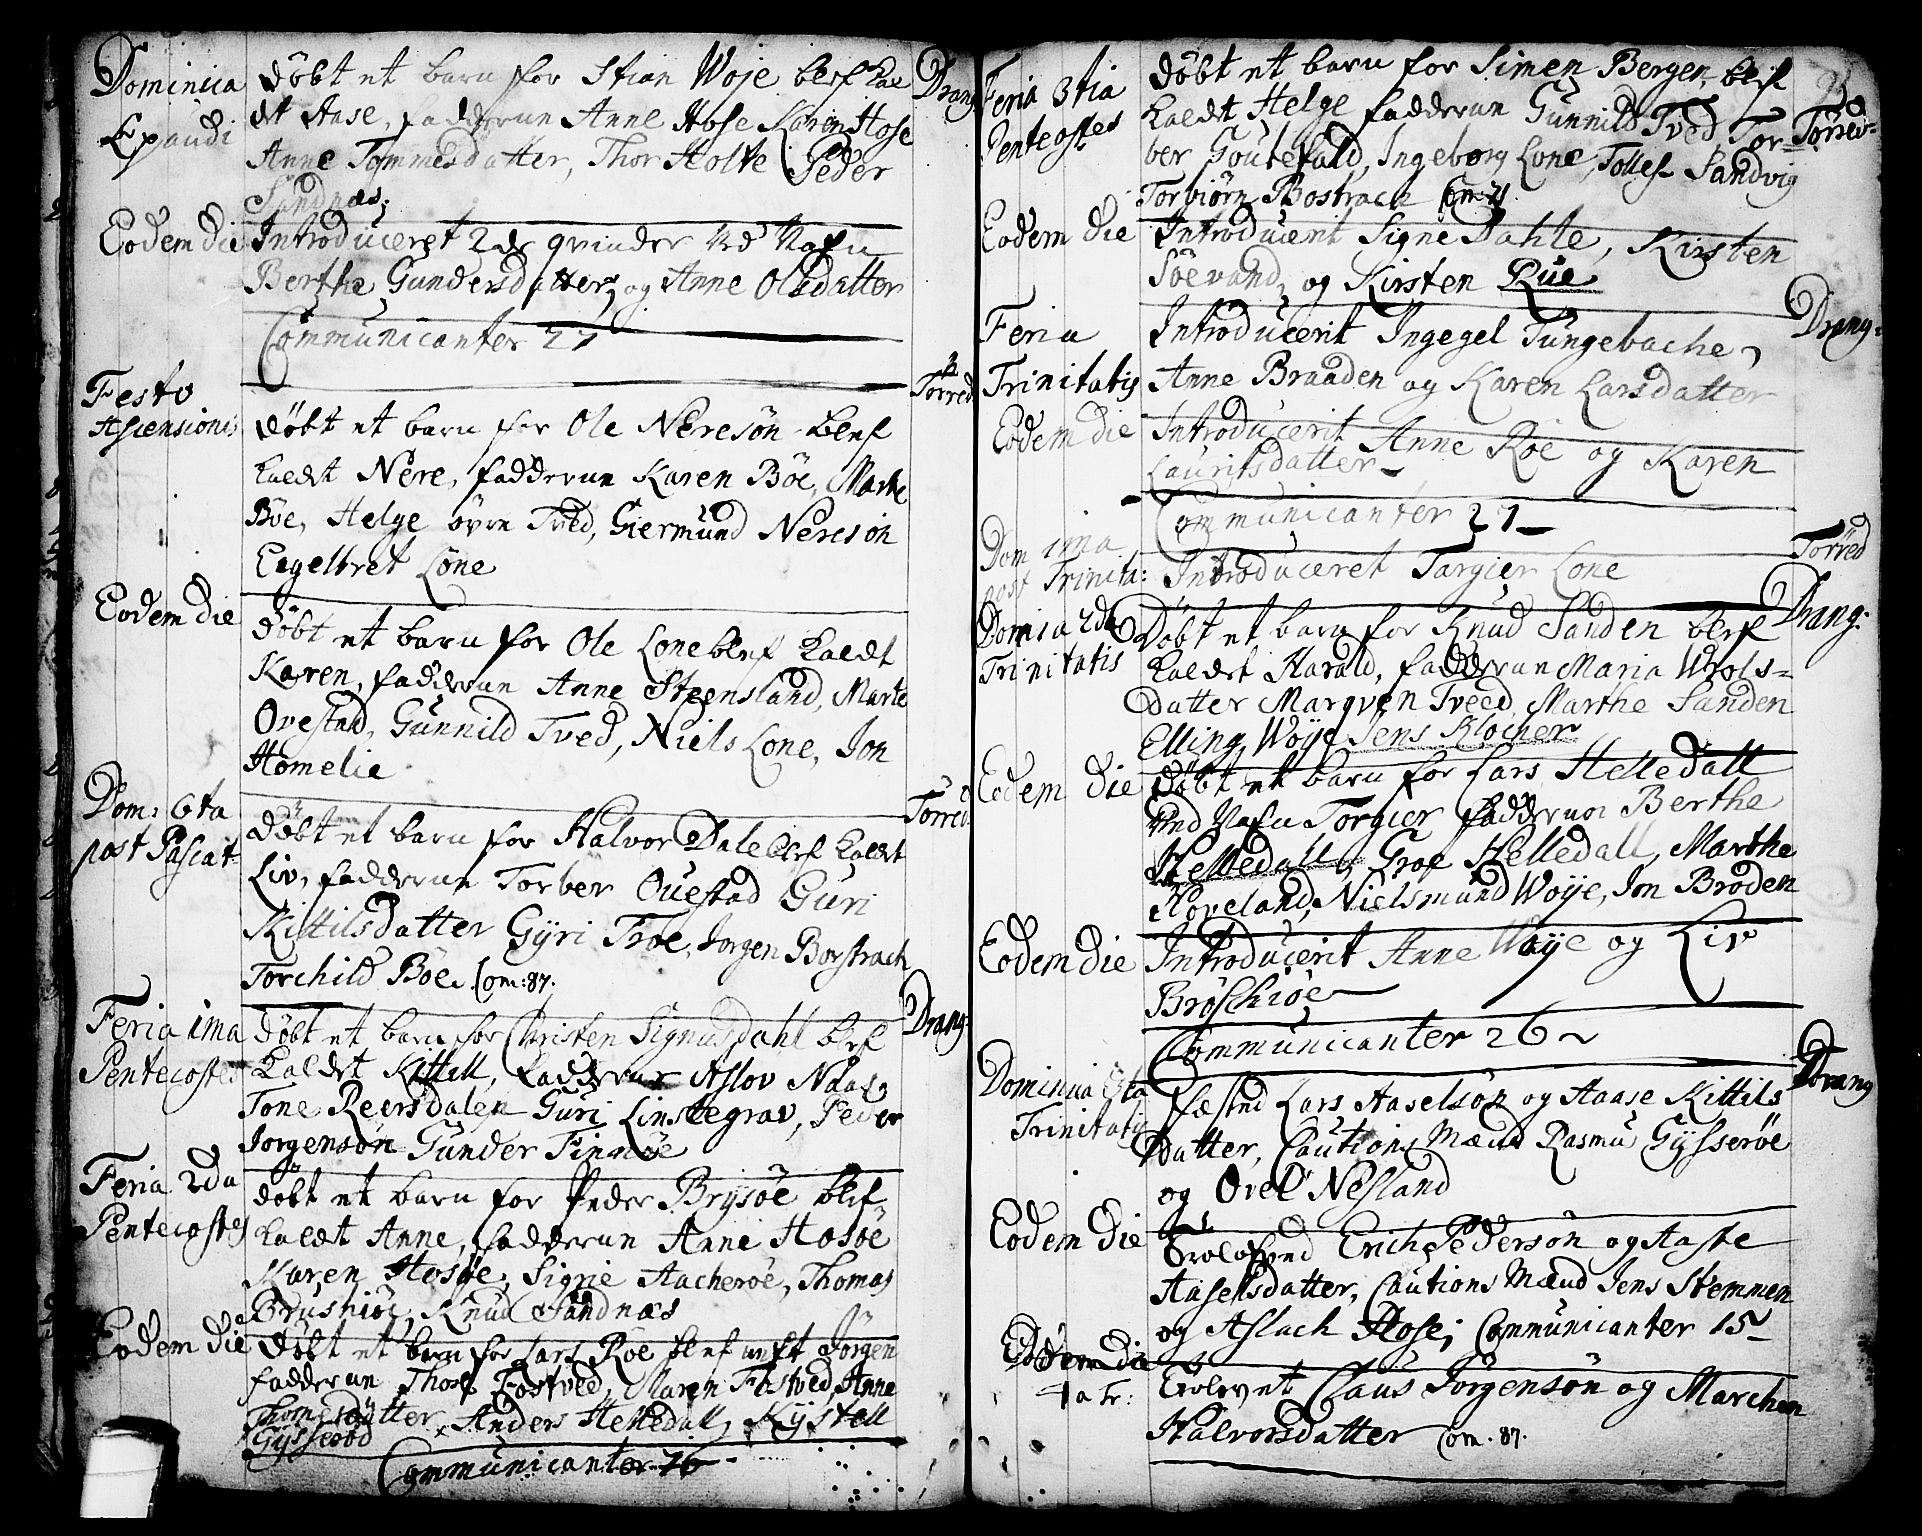 Dominica
Exaudi
Døbt et barn for Stian Woje blef kal
dt Aase, fadderne Anne Hose Karen Hose
Anne Tommesdatter, Thor Holte Peder
Sandnæs.
Drang
Eodem die
Introduceret 2de qvinder ved Nafn
Berthe Gundersdatter, og Anne Olsdatter
Communicanter 27
Festo
Ascensionis
Torred
Døbt et barn for Ole Neresøn blef
kaldt Nere, fadderne Karen Böe, Marthe
Böe, Helge övre Tved, Giermund Neresøn
Engelbret Lone
Eodem die
Døbt et barn for Ole Lone blef kaldt
Karen, fadderne Anne Steensland, Marte
Ovestad, Gunnild Tved, Niels Lone, Jon
Homelie
Dom: 6ta
post Pascat
Torred
Døbt et barn for Halvor Dale blef kaldt
Liv, fadderne Torber Ouestad Guri
Kittilsdatter Gyri Troe, Jorgen Borstrach
Torchild Böe. Com: 87.
Feria 1ma
Pentecostes
Drang:
Døbt et barn for Christen Signusdahl blef
kaldet Kittell, fadderne Aslov Naas,
Tone Reersdalen Guri Linstegrav, Peder
Jorgensøn Gunder Finnöe
Feria 2da
Pentecostes
Døbt et barn for Peder Brÿsöe blef
kaldt Anne, fadderne Anne Hosöe
Karen Hosöe, Sigrie Aacheröe, Thomas
Bruskiöe, Knud Sandnæs
Eodem die
Døbt et barn for Lars Röe blef nefnt Jörgen
fadderne Thor Fostved, Maren Fostved, Anne
Thomesdatter, Anders Helledall, Kÿstell
Gÿsserød
Communicanter 76
Feria 3tia
Pentecostes
Døbt et barn for Simen Bergen, blef
kaldt Helge fadderne Gunnild Tved Tor=
ber Goutefald, Ingeborg Lone, Tollef Sandvig
Torbiörn Bostrach Com: 71.
Torred=
Eodem die
Introducerit Signe Dahle, Kirsten
Söevand, og Kirsten Rue
Feria
Trinitatis
Drang=
Introducerit Ingegel Tungebache,
Anne Braaden og Karen Larsdatter
Eodem die
Introducerit Anne Röe og Karen
Lauritsdatter
Communicanter 27
Dom 1ma
post Trinita:
Introduceret Targier Lone
Torred
Domca 2da
Trinitatis
Drang:
Døbt et barn for Knud Sanden blef
kaldet Harald, fadderne Maria Wrols=
datter Marqven Tveed, Marthe Sanden
Elling Woÿe Jens Klocher
Eodem die
Døbt et barn for Lars Helledall
ved Nafn Torgier fadderne Berthe
Helledall, Groe Helledall, Marthe
Hoveland, Nielsmund Woÿe, Jon Broden
Eodem die
Introducerit Anne Woÿe og Liv
Bröschiöe
Communicanter 26
Dominica
Trinitatis
Drang
Fæsted Lars Aaselsøn og Aaase Kittils
datter, Cautions Mænd Rasmu Gÿsseröe
og Ovel Nesland
Eodem die
Trolofved Erich Pedersøn og Aaste
Aaselsdatter, Cautions Mænd Jens Stemmen
og Aslach Hose; Communicanter 15
Eodem die
Trolovet Claus Jorgensøn og Marchen
Halvorsdatter Com. 87.